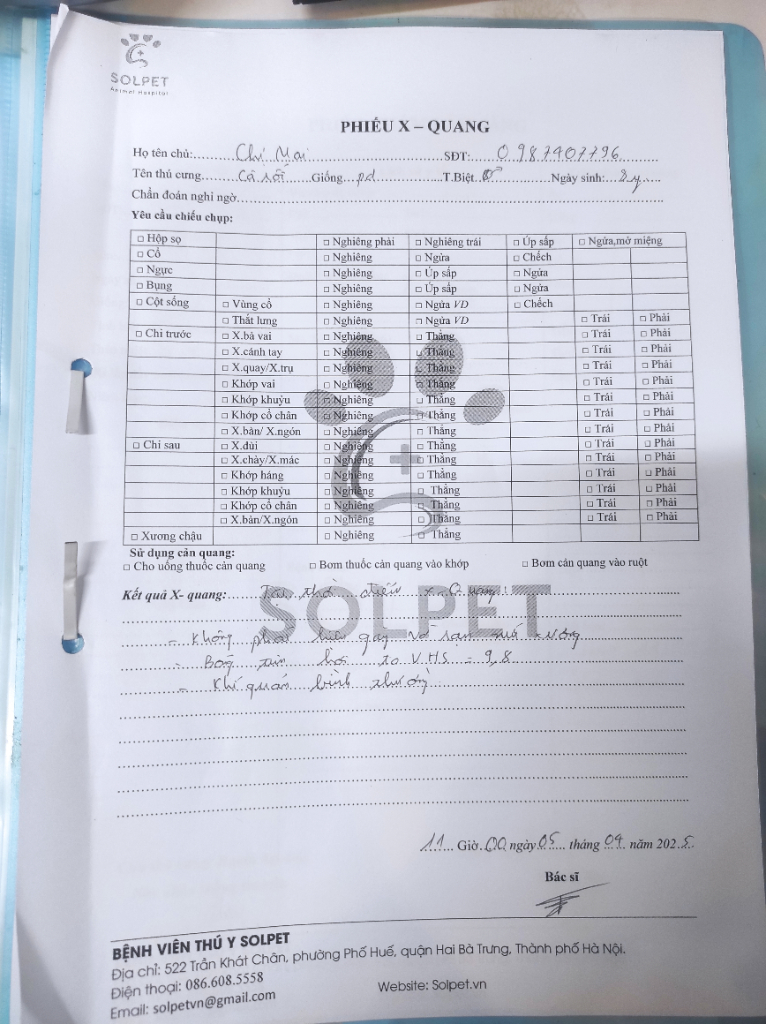 SOLPET
Animal Hospital
PHIẾU X – QUANG
Họ tên chủ: Chị Mai SĐT: 0987407796
Tên thú cưng Cà rốt Giống pd T.Biệt ♂ Ngày sinh: 2y
Chẩn đoán nghi ngờ
Yêu cầu chiếu chụp:
□ Hộp sọ □ Nghiêng phải □ Nghiêng trái □ Úp sấp □ Ngửa,mở miệng
□ Cổ □ Nghiêng □ Ngửa □ Chếch
□ Ngực □ Nghiêng □ Úp sấp □ Ngửa
□ Bụng □ Nghiêng □ Úp sấp □ Ngửa
□ Cột sống □ Vùng cổ □ Nghiêng □ Ngửa VD □ Chếch
□ Thắt lưng □ Nghiêng □ Ngửa VD □ Trái □ Phải
□ Chi trước □ X.bả vai □ Nghiêng □ Thẳng □ Trái □ Phải
□ X.cánh tay □ Nghiêng □ Thẳng □ Trái □ Phải
□ X.quay/X.trụ □ Nghiêng □ Thẳng □ Trái □ Phải
□ Khớp vai □ Nghiêng □ Thẳng □ Trái □ Phải
□ Khớp khuỷu □ Nghiêng □ Thẳng □ Trái □ Phải
□ Khớp cổ chân □ Nghiêng □ Thẳng □ Trái □ Phải
□ X.bàn/ X.ngón □ Nghiêng □ Thẳng □ Trái □ Phải
□ Chi sau □ X.đùi □ Nghiêng □ Thẳng □ Trái □ Phải
□ X.chày/X.mác □ Nghiêng □ Thẳng □ Trái □ Phải
□ Khớp háng □ Nghiêng □ Thẳng □ Trái □ Phải
□ Khớp khuỷu □ Nghiêng □ Thẳng □ Trái □ Phải
□ Khớp cổ chân □ Nghiêng □ Thẳng □ Trái □ Phải
□ X.bàn/X.ngón □ Nghiêng □ Thẳng □ Trái □ Phải
□ Xương chậu □ Nghiêng □ Thẳng
Sử dụng cản quang:
□ Cho uống thuốc cản quang □ Bơm thuốc cản quang vào khớp □ Bơm cản quang vào ruột
Kết quả X- quang: Tại thời điểm x-Quang:
SOLPET
- Không phát hiện gãy vỡ rạn xương
- Bóng tim hơi to VHS = 9,8
- Khí quản bình thường
11 Giờ 00 ngày 05 tháng 09 năm 2025
Bác sĩ
BỆNH VIỆN THÚ Y SOLPET
Địa chỉ: 522 Trần Khát Chân, phường Phố Huế, quận Hai Bà Trưng, Thành phố Hà Nội.
Điện thoại: 086.608.5558
Website: Solpet.vn
Email: solpetvn@gmail.com